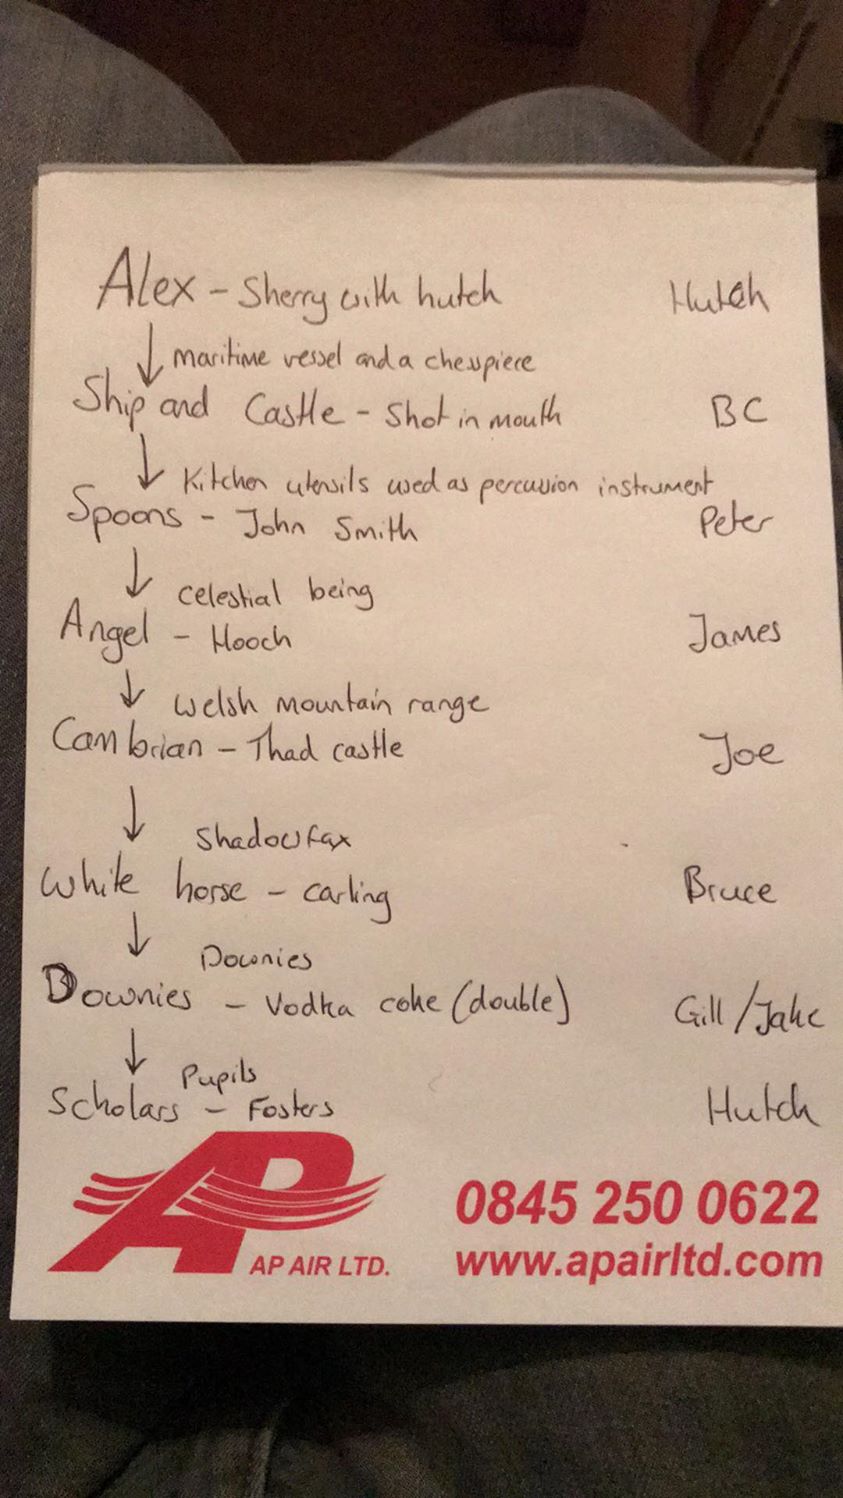 Alex - Sherry with hutch Hutch
↓ maritime vessel and a chesspiece
Ship and Castle - Shot in mouth BC
↓ Kitchen utensils used as percussion instrument
Spoons - John Smith Peter
↓ celestial being
Angel - Hooch James
↓ Welsh mountain range
Cambrian - Thad castle Joe
↓ Shadowfax
White horse - carling Bruce
↓ Downies
Downies - Vodka coke (double) Gill/Jake
↓ Pupils
Scholars - Fosters Hutch
AP 0845 250 0622
AP AIR LTD. www.apairltd.com